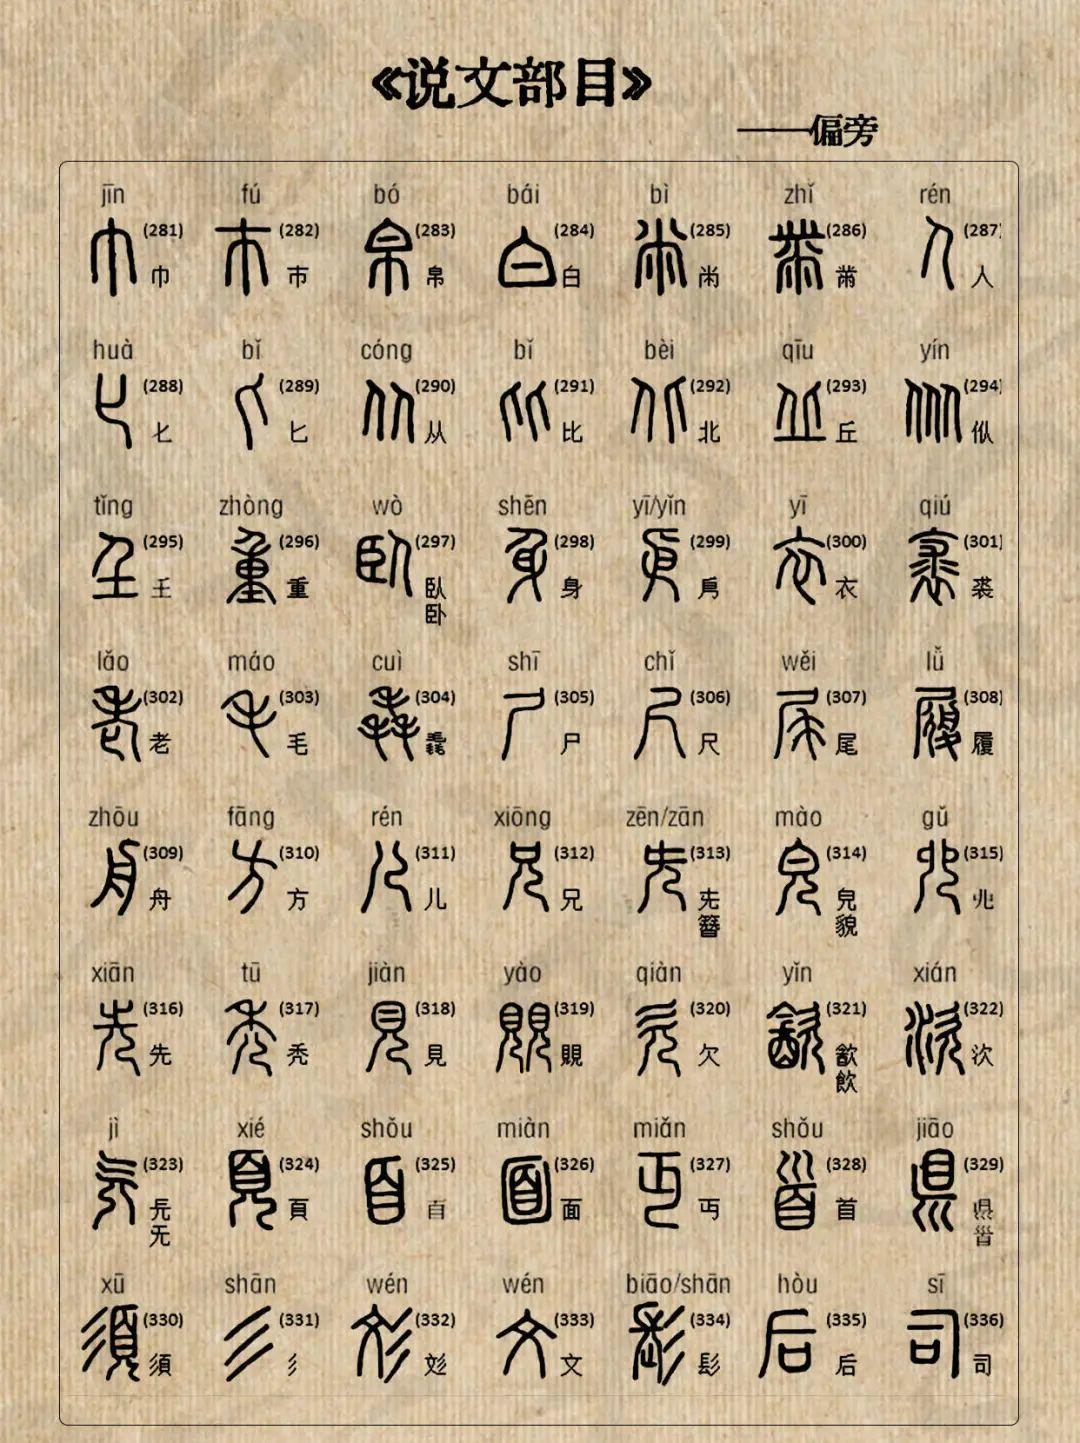 《说文部目》
——偏旁
jīn fú bó bái bì zhǐ rén
(281) (282) (283) (284) (285) (286) (287)
巾 巿 帛 白 㡀 黹 人
huà bǐ cóng bǐ bèi qīu yín
(288) (289) (290) (291) (292) (293) (294)
匕 匕 从 比 北 丘 㐺
tǐng zhòng wò shēn yī/yǐn yī qiú
(295) (296) (297) (298) (299) (300) (301)
𡈼 重 臥 身 㐆 衣 裘
卧
lǎo máo cuì shī chǐ wěi lǚ
(302) (303) (304) (305) (306) (307) (308)
老 毛 毳 尸 尺 尾 履
zhōu fāng rén xiōng zēn/zān mào gǔ
(309) (310) (311) (312) (313) (314) (315)
舟 方 儿 兄 兂 皃 𠑹
簪 貌
xiān tū jiàn yào qiàn yǐn xián
(316) (317) (318) (319) (320) (321) (322)
先 秃 見 覞 欠 㱃 㳄
飲
jì xié shǒu miàn miǎn shǒu jiāo
(323) (324) (325) (326) (327) (328) (329)
旡 頁 𦣻 面 丏 首 県
无
xū shān wén wén biāo/shān hòu sī
(330) (331) (332) (333) (334) (335) (336)
須 彡 彣 文 髟 后 司